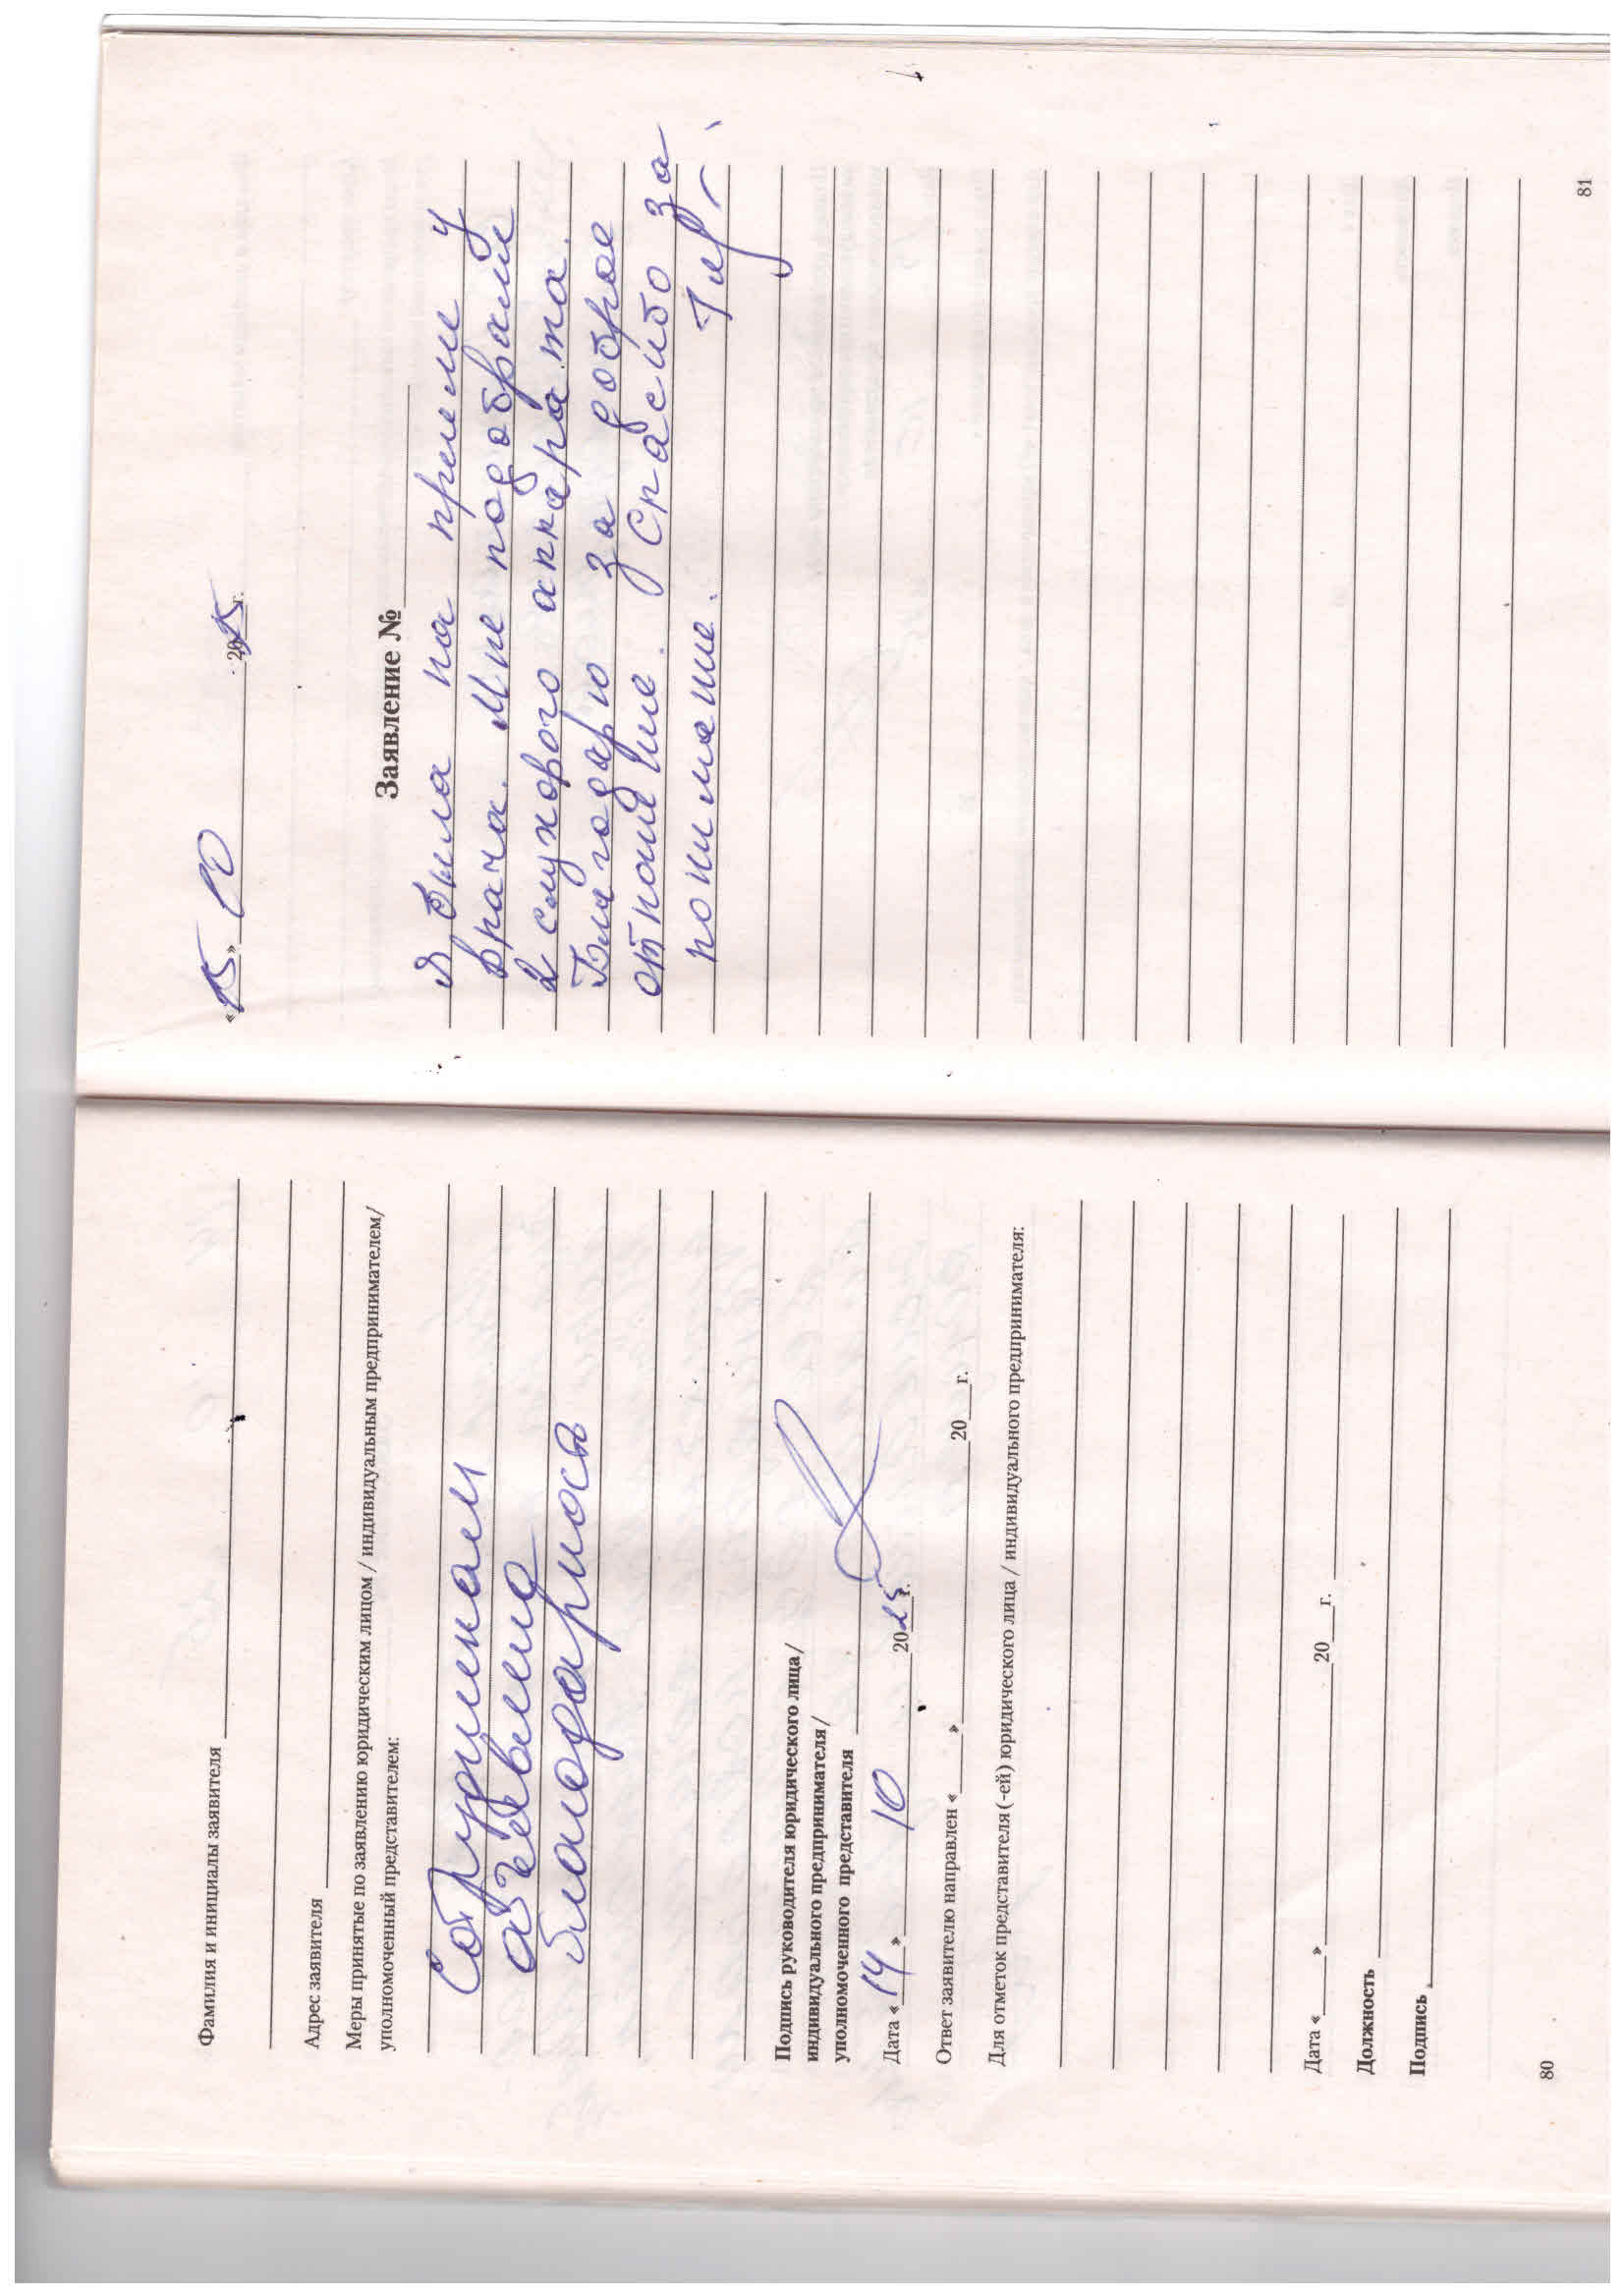 Фамилия и инициалы заявителя
Адрес заявителя
Меры принятые по заявлению юридическим лицом / индивидуальным предпринимателем/
уполномоченный представителем:
Сотрудникам
объявлена
благодарность
Подпись руководителя юридического лица /
индивидуального предпринимателя /
уполномоченного представителя
Дата « 14 » 10 2025 г.
Ответ заявителю направлен «___» 20__г.
Для отметок представителя (-ей) юридического лица / индивидуального предпринимателя:
Дата «___» 20__г.
Должность
Подпись
80
«15» 10 2025 г.
Заявление №
Я была на приеме у
врача. Мне подобрали
2 слухового аппарата.
Благодарю за доброе
отношение. Спасибо за
понимание.
81